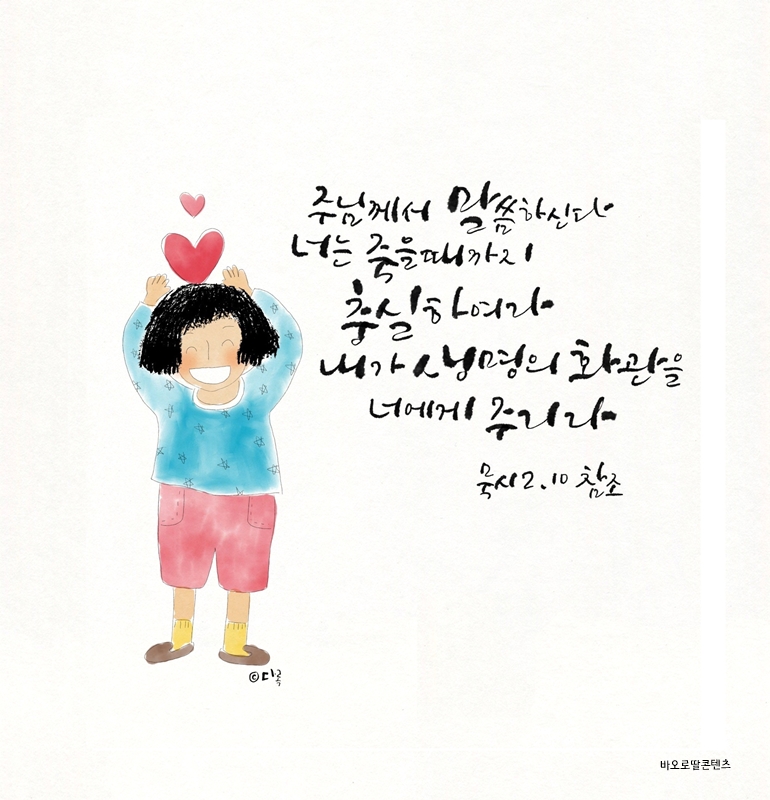 주님께서 말씀하신다
너는 죽을때까지
충실하여라
내가 생명의 화관을
너에게 주리라
묵시2.10 참조
©다록
바오로딸콘텐츠